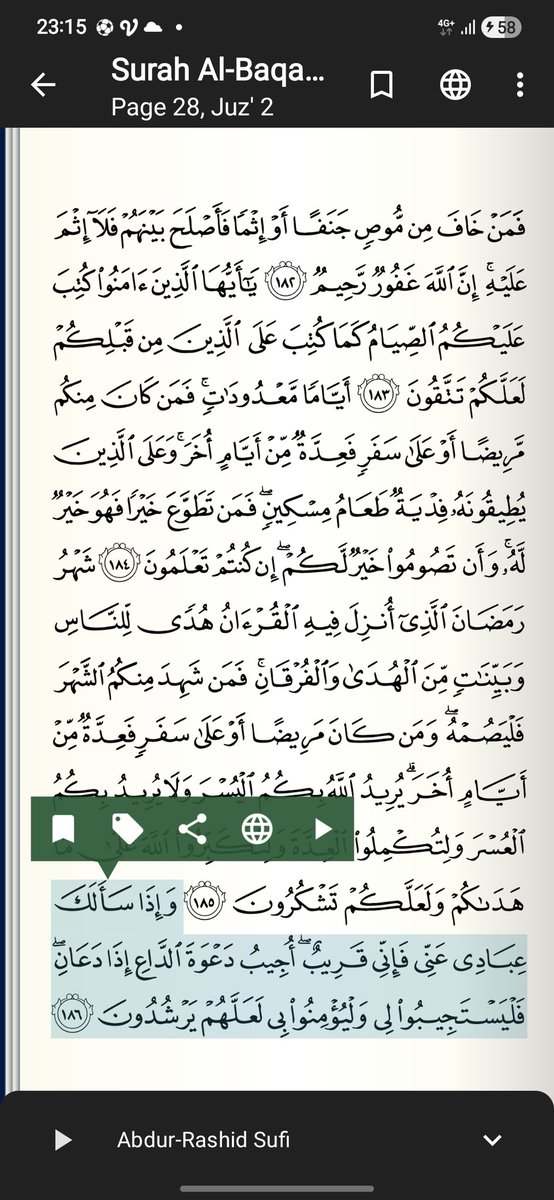 23:15
4G+
58
Surah Al-Baqa...
Page 28, Juz' 2
فَمَنْ خَافَ مِن مُّوصٍ جَنَفًا أَوْ إِثْمًا فَأَصْلَحَ بَيْنَهُمْ فَلَآ إِثْمَ
عَلَيْهِ ۚ إِنَّ ٱللَّهَ غَفُورٌ رَّحِيمٌ ١٨٢ يَـٰٓأَيُّهَا ٱلَّذِينَ ءَامَنُوا۟ كُتِبَ
عَلَيْكُمُ ٱلصِّيَامُ كَمَا كُتِبَ عَلَى ٱلَّذِينَ مِن قَبْلِكُمْ
لَعَلَّكُمْ تَتَّقُونَ ١٨٣ أَيَّامًا مَّعْدُودَٰتٍ ۚ فَمَن كَانَ مِنكُم
مَّرِيضًا أَوْ عَلَىٰ سَفَرٍ فَعِدَّةٌ مِّنْ أَيَّامٍ أُخَرَ ۚ وَعَلَى ٱلَّذِينَ
يُطِيقُونَهُۥ فِدْيَةٌ طَعَامُ مِسْكِينٍ ۖ فَمَن تَطَوَّعَ خَيْرًا فَهُوَ خَيْرٌ
لَّهُۥ ۚ وَأَن تَصُومُوا۟ خَيْرٌ لَّكُمْ ۖ إِن كُنتُمْ تَعْلَمُونَ ١٨٤ شَهْرُ
رَمَضَانَ ٱلَّذِىٓ أُنزِلَ فِيهِ ٱلْقُرْءَانُ هُدًى لِّلنَّاسِ
وَبَيِّنَـٰتٍ مِّنَ ٱلْهُدَىٰ وَٱلْفُرْقَانِ ۚ فَمَن شَهِدَ مِنكُمُ ٱلشَّهْرَ
فَلْيَصُمْهُ ۖ وَمَن كَانَ مَرِيضًا أَوْ عَلَىٰ سَفَرٍ فَعِدَّةٌ مِّنْ
أَيَّامٍ أُخَرَ ۗ يُرِيدُ ٱللَّهُ بِكُمُ ٱلْيُسْرَ وَلَا يُرِيدُ بِكُمُ
ٱلْعُسْرَ وَلِتُكْمِلُوا۟
هَدَىٰكُمْ وَلَعَلَّكُمْ تَشْكُرُونَ ١٨٥ وَإِذَا سَأَلَكَ
عِبَادِى عَنِّى فَإِنِّى قَرِيبٌ ۖ أُجِيبُ دَعْوَةَ ٱلدَّاعِ إِذَا دَعَانِ ۖ
فَلْيَسْتَجِيبُوا۟ لِى وَلْيُؤْمِنُوا۟ بِى لَعَلَّهُمْ يَرْشُدُونَ ١٨٦
Abdur-Rashid Sufi